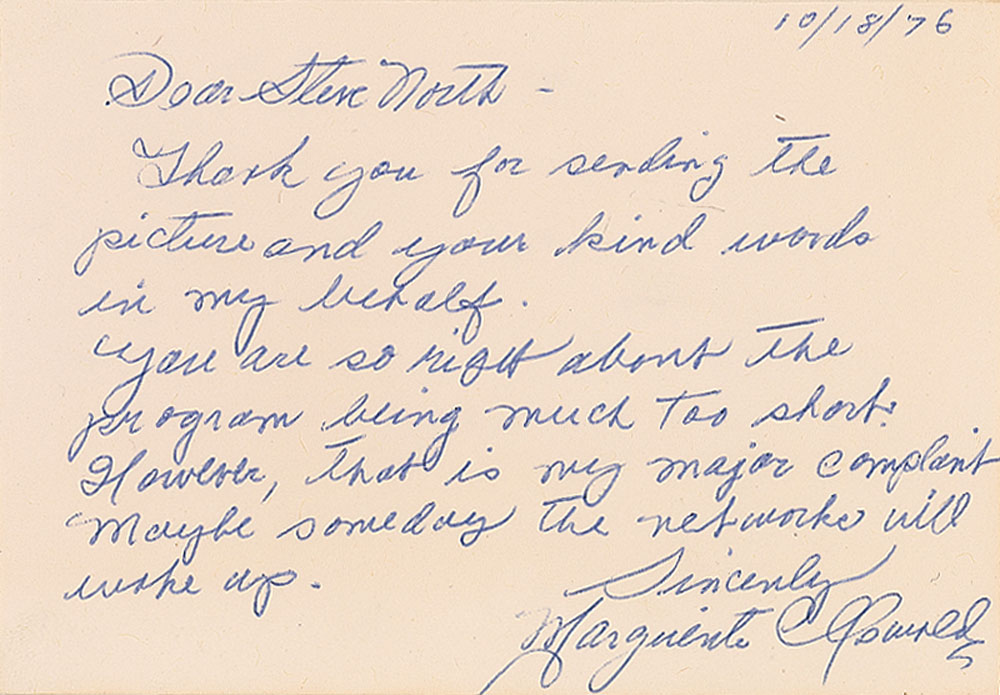 10/18/76
Dear Steve North -
Thank you for sending the
picture and your kind words
in my behalf.
You are so right about the
program being much too short.
However, that is my major complaint
Maybe someday the networks will
wake up.
Sincerely
Marguerite C Oswald